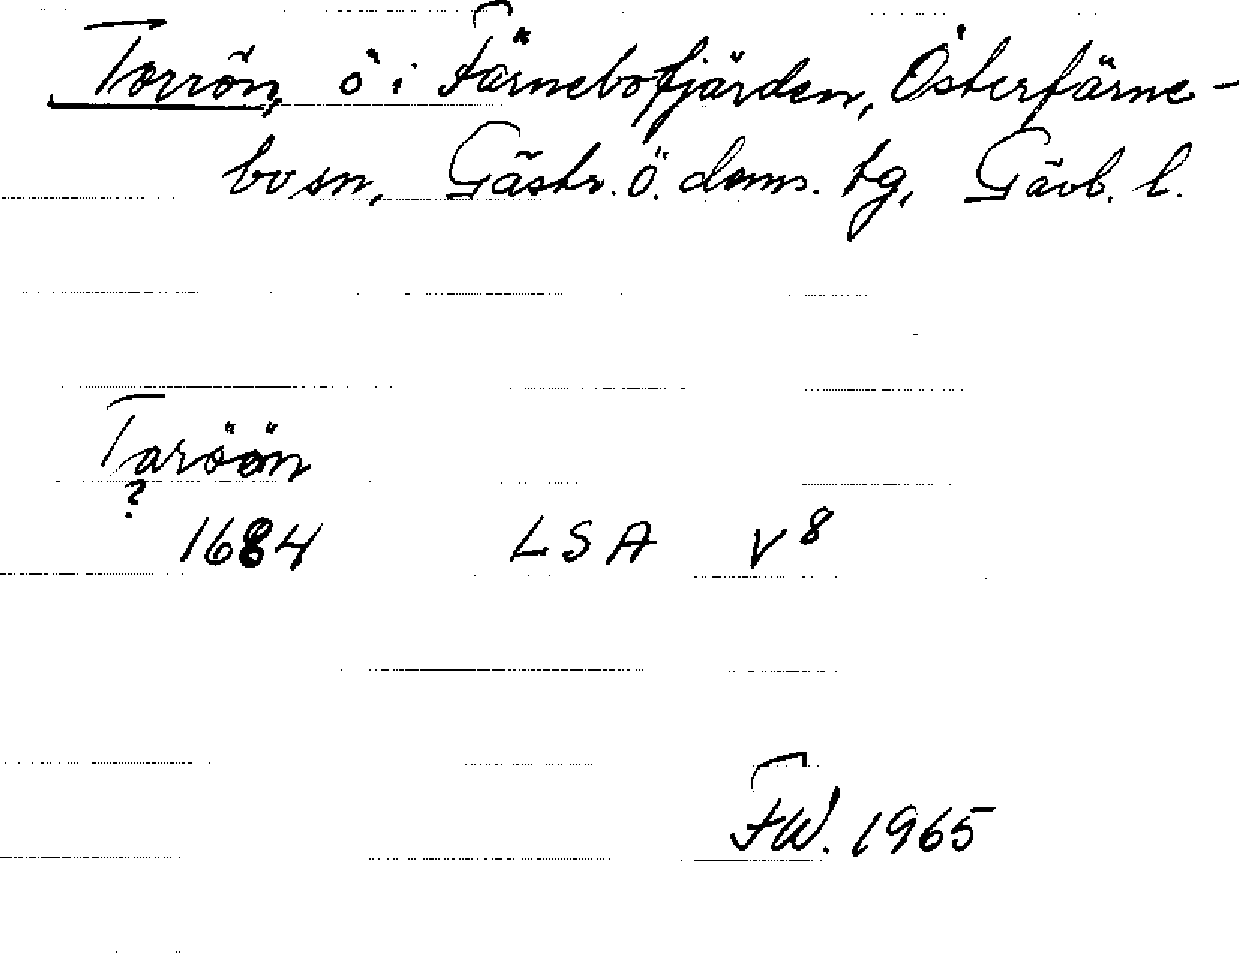 Torrön, ö i Färnebofjärden, Österfärne-
bo sn, Gästr. ö. doms. tg, Gävb. l.
Taröön
?
1684 LSA V 8
FW. 1965